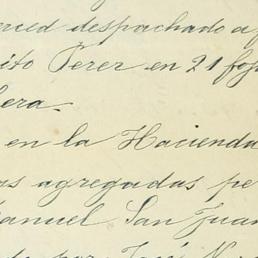 erced despachado a f
ito Perez en 21 foj
era.
en la Hacienda
as agregadas pe
anuel San Juan